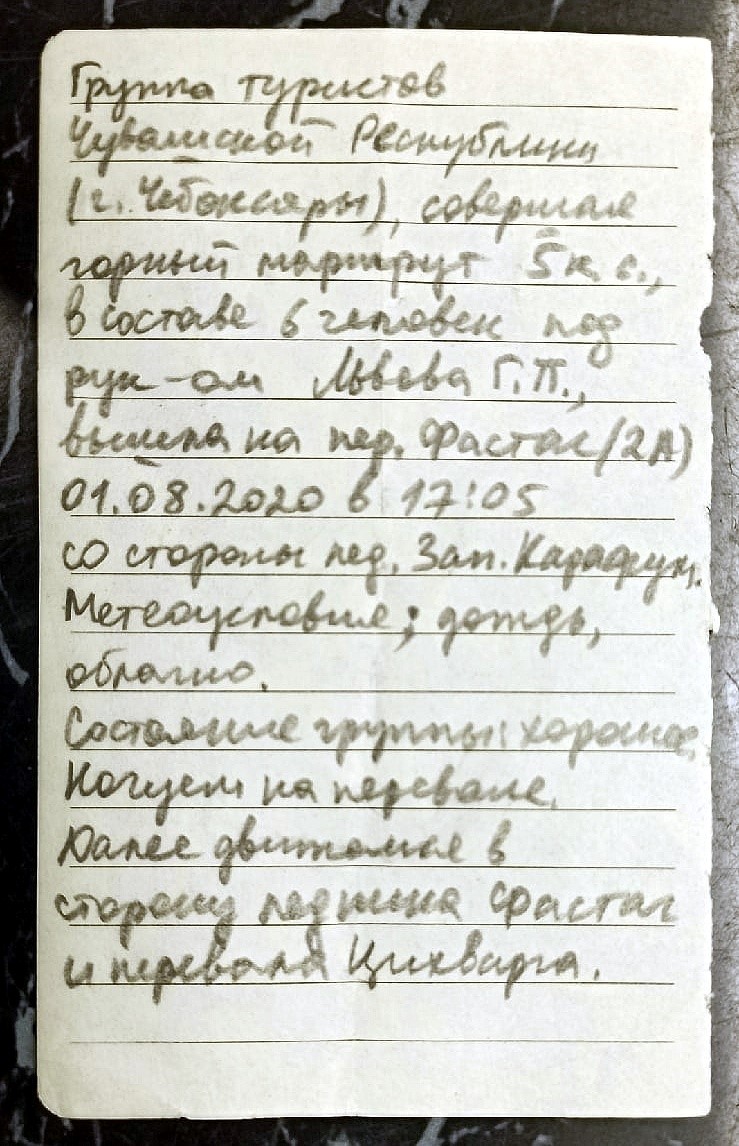 Группа туристов
Чувашской Республики
(г. Чебоксары), совершая
горный маршрут 5 к.с.,
в составе 6 человек под
рук-ом Львова Г.П.,
вышла на пер. Фастаг (2А)
01.08.2020 в 17:05
со стороны лед. Зап. Караугом.
Метеоусловия: дождь,
облачно.
Состояние группы: хорошее.
Ночуем на перевале.
Далее движемся в
сторону ледника Фастаг
и перевала Цихварга.